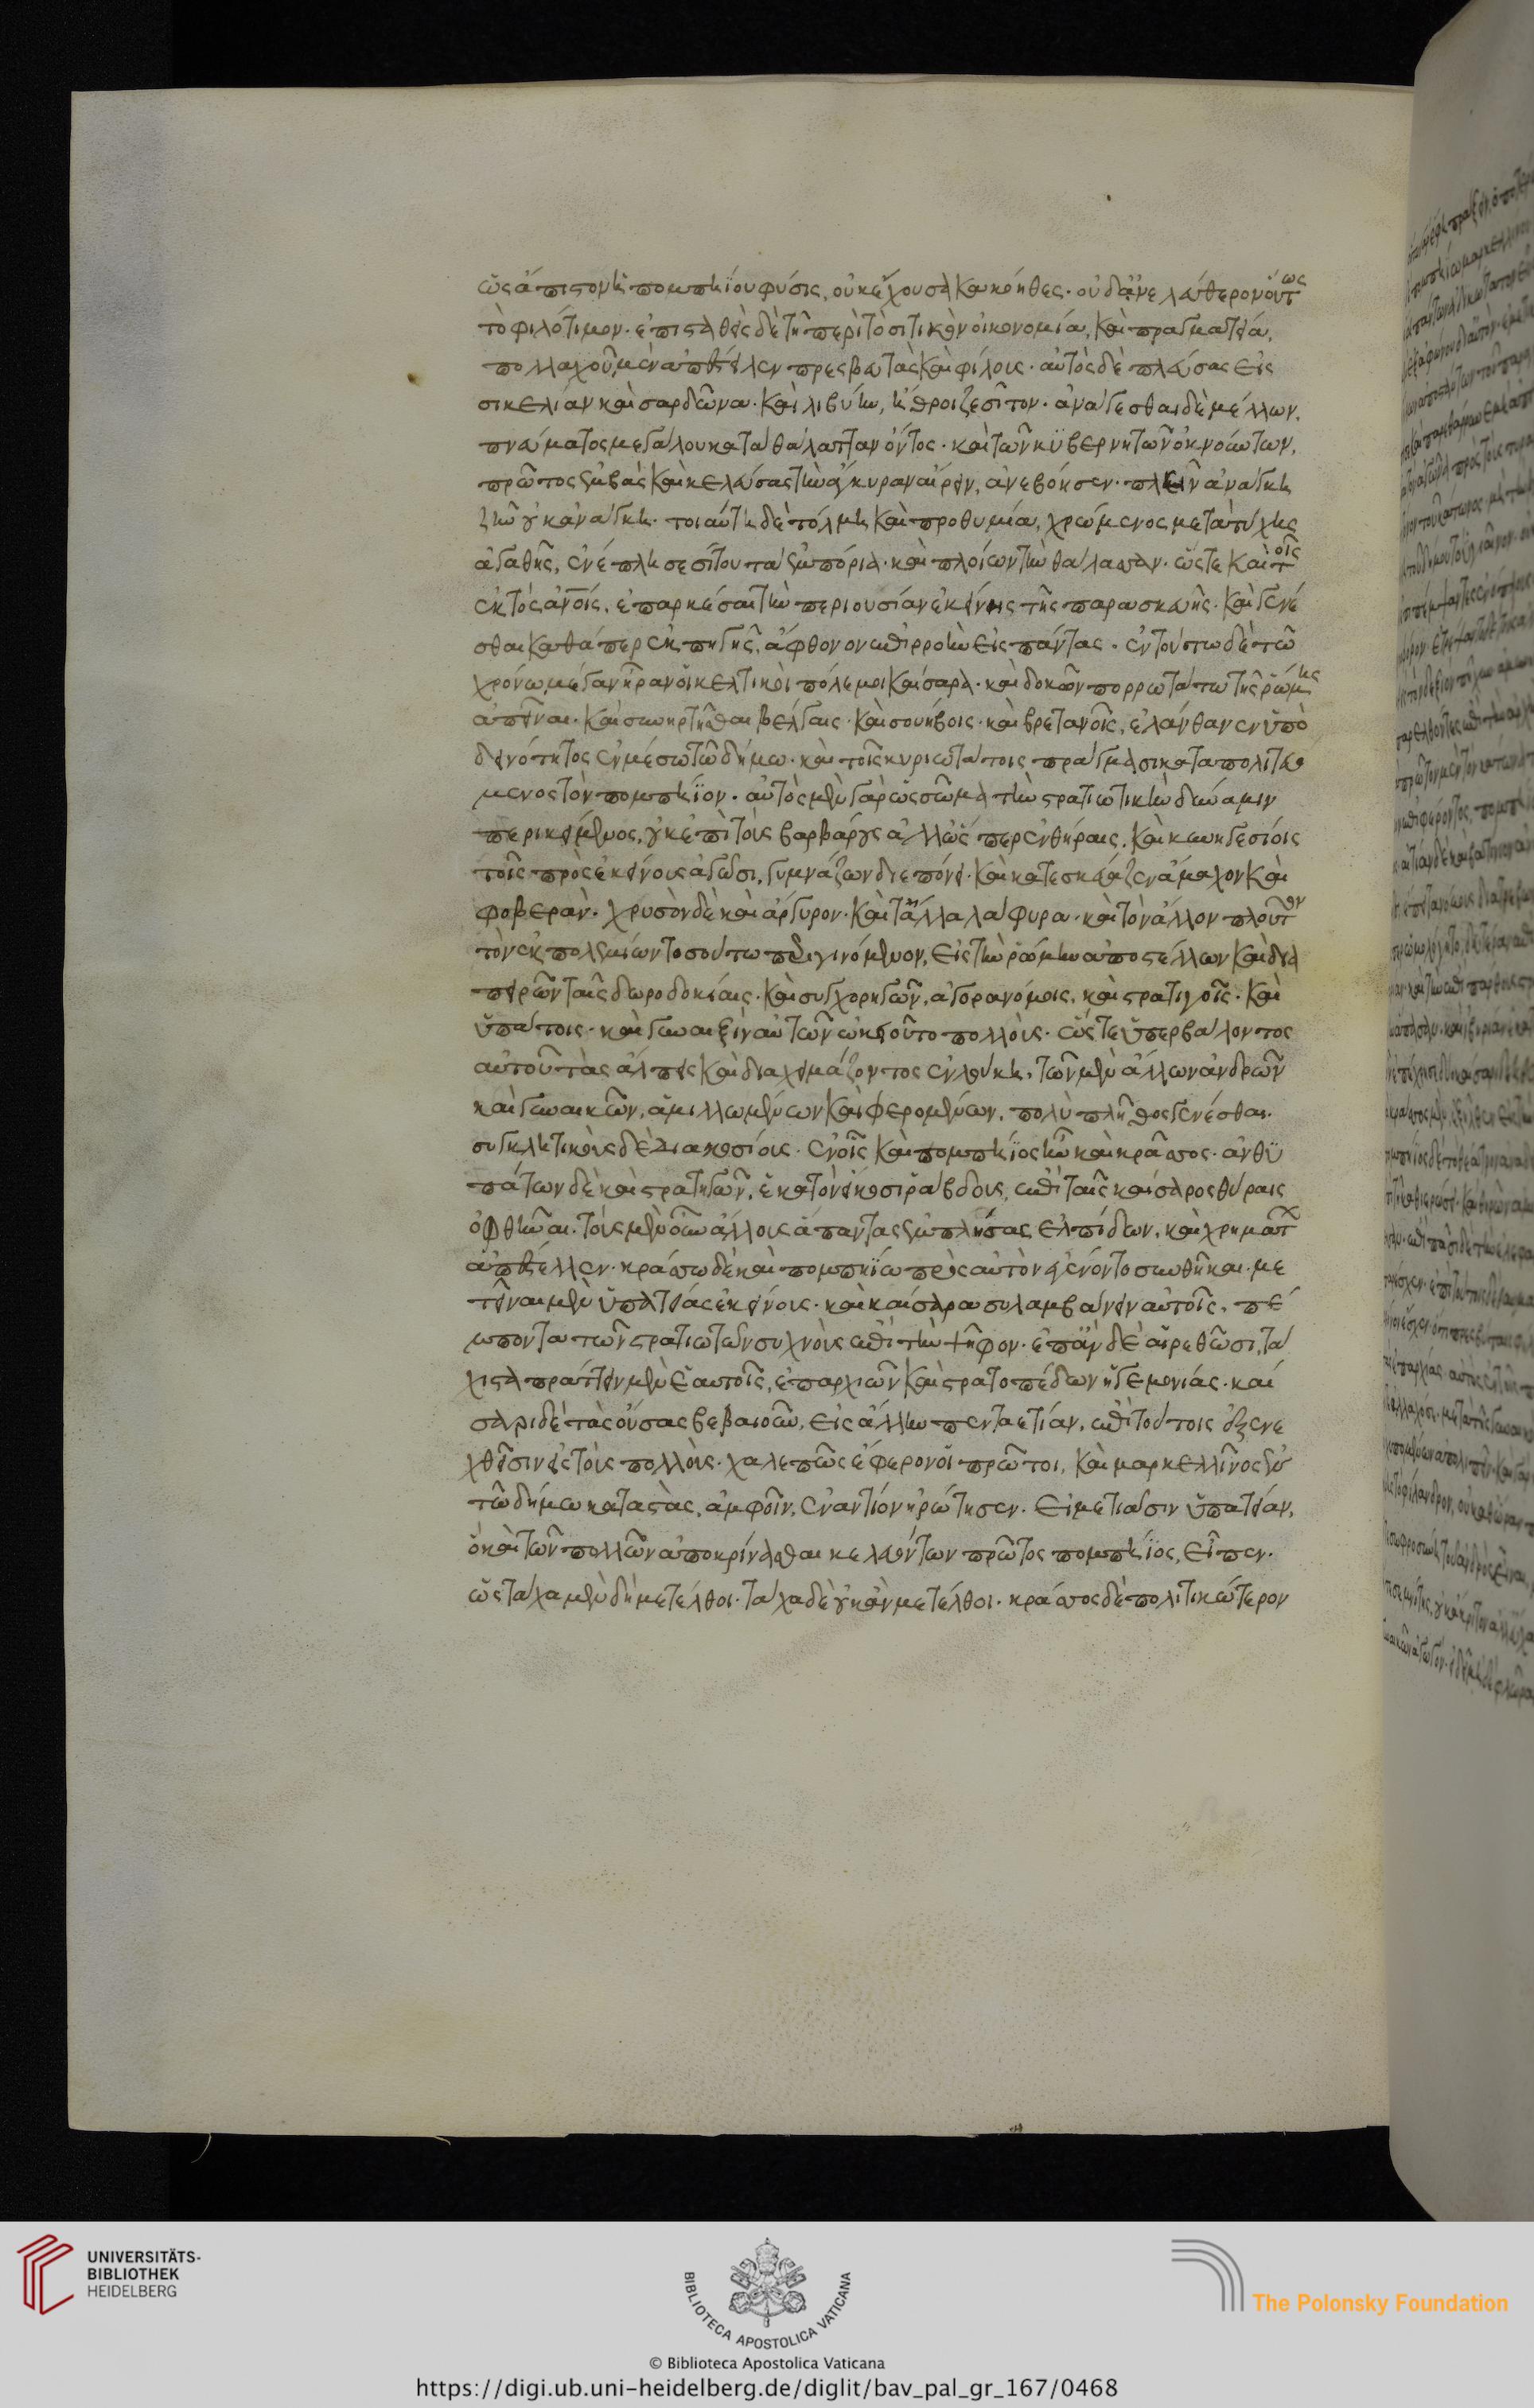 ὡς ἄπιστον ἡ πομπηΐου φύσις, οὐκ ἔχουσα κακόηθες. οὐδ' ἀνελεύθερον οὕτως
τὸ φιλότιμον. ἐπισταθεὶς δὲ τῆ περὶ τὸ σιτικὸν οἰκονομία, καὶ πραγματεία,
πολλαχοῦ μὲν ἀπέστειλεν πρεσβευτὰς καὶ φίλους. αὐτὸς δὲ πλεύσας εἰς
σικελίαν καὶ σαρδῶνα. καὶ λιβύην, ἤθροιζε σῖτον. ἀνάγεσθαι δὲ μέλλων,
πνεύματος μεγάλου κατὰ θάλατταν ὄντος. καὶ τῶν κυβερνητῶν ὀκνούντων,
πρῶτος ἐμβὰς καὶ κελεύσας τὴν ἄγκυραν αἴρειν, ἀνεβόησεν. πλεῖν ἀνάγκη
ζῆν οὐκ ἀνάγκη. τοιαύτη δὲ τόλμη καὶ προθυμία, χρώμενος μετὰ τύχης
ἀγαθῆς, ἐνέπλησε σίτου τὰ ἐμπόρια. καὶ πλοίων τὴν θάλασσαν. ὥστε καὶ τοῖς
ἐκτὸς ἀνοις, ἐπαρκέσαι τὴν περιουσίαν ἐκείνης τῆς παρασκευῆς. καὶ γενέ
σθαι καθάπερ ἐκ πηγῆς, ἄφθονον ἐπιρροὴν εἰς πάντας. ἐν τούτω δὲ τῶ
χρόνω, μέγαν ἦραν οἱ κελτικοὶ πόλεμοι καίσαρα. καὶ δοκῶν πορρωτάτω τῆς ῥώμης
ἀπεῖναι. καὶ συνηρτῆσθαι βέλγαις. καὶ σουήβοις. καὶ βρετανοῖς, ἐλάνθανεν ὑπὸ
δεινότητος ἐν μέσω τῶ δήμω. καὶ τοῖς κυριωτάτοις πράγμασι καταπολιτευό
μενος τὸν πομπήϊον. αὐτὸς μὲν γὰρ ὡς σῶμα τὴν στρατιωτικὴν δύναμιν
περικείμενος, οὐκ ἐπὶ τοὺς βαρβάρους ἀλλ' ὥσπερ ἐν θήραις, καὶ κυνηγεσίοις
τοῖς πρὸς ἐκείνους ἀγῶσι, γυμνάζων διεπόνει. καὶ κατεσκεύαζεν ἄμαχον καὶ
φοβεράν. χρυσὸν δὲ καὶ ἄργυρον. καὶ τἄλλα λάφυρα. καὶ τὸν ἄλλον πλοῦτον
τὸν ἐκ πολεμίων τοσούτων περιγινόμενον, εἰς τὴν ῥώμην ἀποστέλλων καὶ δια
πειρῶν ταῖς δωροδοκίαις. καὶ συγχορηγῶν, ἀγορανόμοις, καὶ στρατηγοῖς. καὶ
ὑπάτοις. καὶ γυναιξὶν αὐτῶν ὠκειοῦτο πολλούς. ὥστε ὑπερβάλοντος
αὐτοῦ τὰς ἄλπεις καὶ διαχειμάζοντος ἐν λούκη, τῶν μὲν ἄλλων ἀνδρῶν
καὶ γυναικῶν, ἁμιλλωμένων καὶ φερομένων, πολὺ πλῆθος γενέσθαι.
συγκλητικοὺς δὲ διακοσίους. ἐν οἷς καὶ πομπήϊος ἦν καὶ κράσσος. ἀνθυ
πάτων δὲ καὶ στρατηγῶν, ἑκατὸν εἴκοσι ῥάβδους, ἐπὶ ταῖς καίσαρος θύραις
ὀφθῆναι. τοὺς μὲν οὖν ἄλλους ἅπαντας ἐμπλήσας ἐλπίδων, καὶ χρημάτ
ἀπέστελλεν. κράσσω δὲ καὶ πομπηίω πρὸς αὐτὸν ἐγένοντο συνθῆκαι. με
τιέναι μὲν ὑπατείας ἐκείνους. καὶ καίσαρα συλαμβάνειν αὐτοῖς, πέ
μποντα τῶν στρατιωτῶν συχνοὺς ἐπὶ τὴν ψῆφον. ἐπὰν δὲ αἱρεθῶσι, τά
χιστα πράττειν μὲν ἑαυτοῖς, ἐπαρχιῶν καὶ στρατοπέδων ἡγεμονίας. καί
σαρι δὲ τὰς οὔσας βεβαιοῦν, εἰς ἄλλην πενταετίαν, ἐπὶ τούτοις ἐξενε
χθεῖσιν εἰς τοὺς πολλούς. χαλεπῶς ἔφερον οἱ πρῶτοι, καὶ μαρκελλῖνος ἐν
τῶ δήμω καταστὰς, ἀμφοῖν, ἐναντίον ἠρώτησεν. εἰ μετίασιν ὑπατείαν,
ὁ καὶ τῶν πολλῶν ἀποκρίνασθαι κελευόντων πρῶτος πομπήϊος, εἶπεν.
ὡς τάχα μὲν δὴ μετέλθοι. τάχα δὲ οὐκ ἂν μετέλθοι. κράσσος δὲ πολιτικώτερον
UNIVERSITÄTS-
BIBLIOTHEK
HEIDELBERG
BIBLIOTECA APOSTOLICA VATICANA
The Polonsky Foundation
© Biblioteca Apostolica Vaticana
https://digi.ub.uni-heidelberg.de/diglit/bav_pal_gr_167/0468